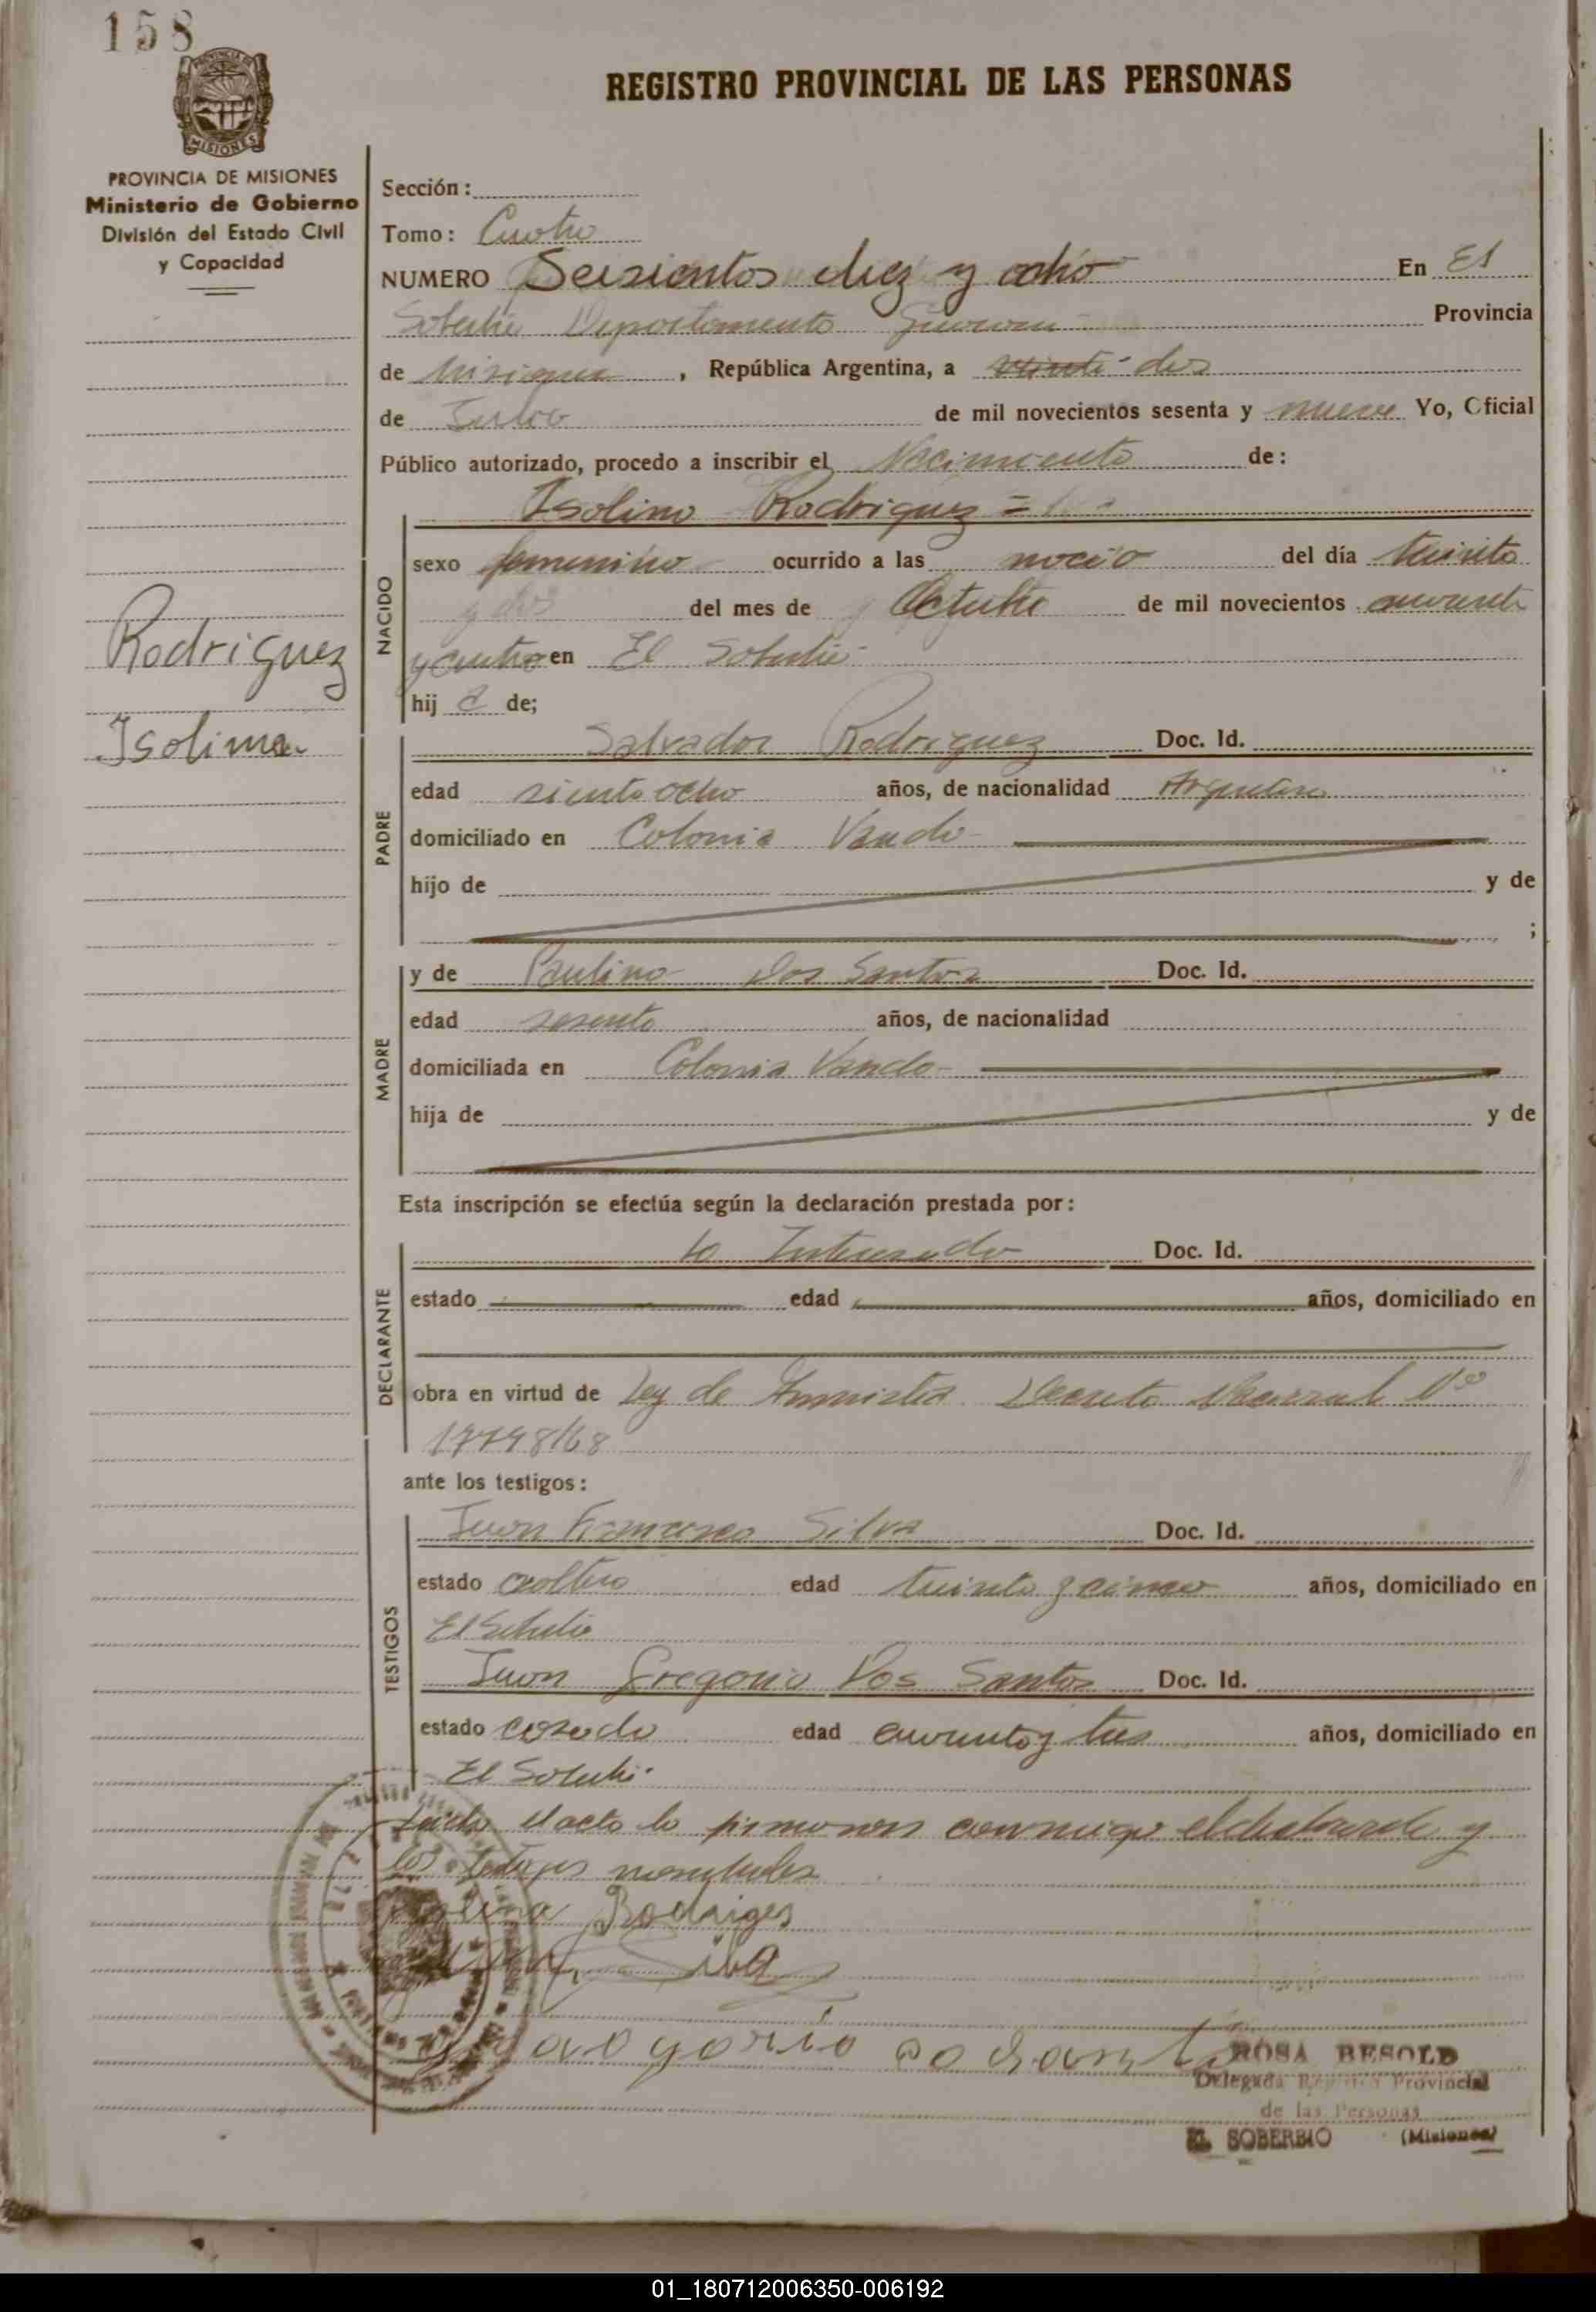 158
REGISTRO PROVINCIAL DE LAS PERSONAS
MISIONES
PROVINCIA DE MISIONES
Ministerio de Gobierno
División del Estado Civil
y Capacidad
Sección:
Tomo: Cuatro
NUMERO Seisientos diez y ocho En El
Soberbio Departamento Guarani Provincia
de Misiones, República Argentina, a veinti dos
de Julio de mil novecientos sesenta y nueve Yo, Oficial
Público autorizado, procedo a inscribir el Nacimiento de:
Isolina Rodriguez =
NACIDO
sexo femenino ocurrido a las del día treinta
y dos del mes de Octubre de mil novecientos cuarenta
y cuatro en El Soberbio
hij a de;
Rodriguez
Isolina
PADRE
Salvador Rodriguez Doc. Id.
edad sienta ocho años, de nacionalidad Argentino
domiciliado en Colonia Vando
hijo de y de
;
MADRE
y de Paulina Dos Santos Doc. Id.
edad sesenta años, de nacionalidad
domiciliada en Colonia Vando
hija de y de
Esta inscripción se efectúa según la declaración prestada por:
DECLARANTE
la Interesada Doc. Id.
estado edad años, domiciliado en
obra en virtud de Ley de Amnistia Decreto Nacional Nº
17748/68
ante los testigos:
TESTIGOS
Juan Francisco Silva Doc. Id.
estado soltero edad treinta y cinco años, domiciliado en
El Soberbio
Juan Gregorio Dos Santos Doc. Id.
estado casado edad cuarenta y tres años, domiciliado en
El Soberbio
el acto lo firmaron conmigo el declarante y
los testigos
Rodriges
Silva
ROSA BESOLD
Delegada Registro Provincial
de las Personas
EL SOBERBIO (Misiones)
01_180712006350-006192